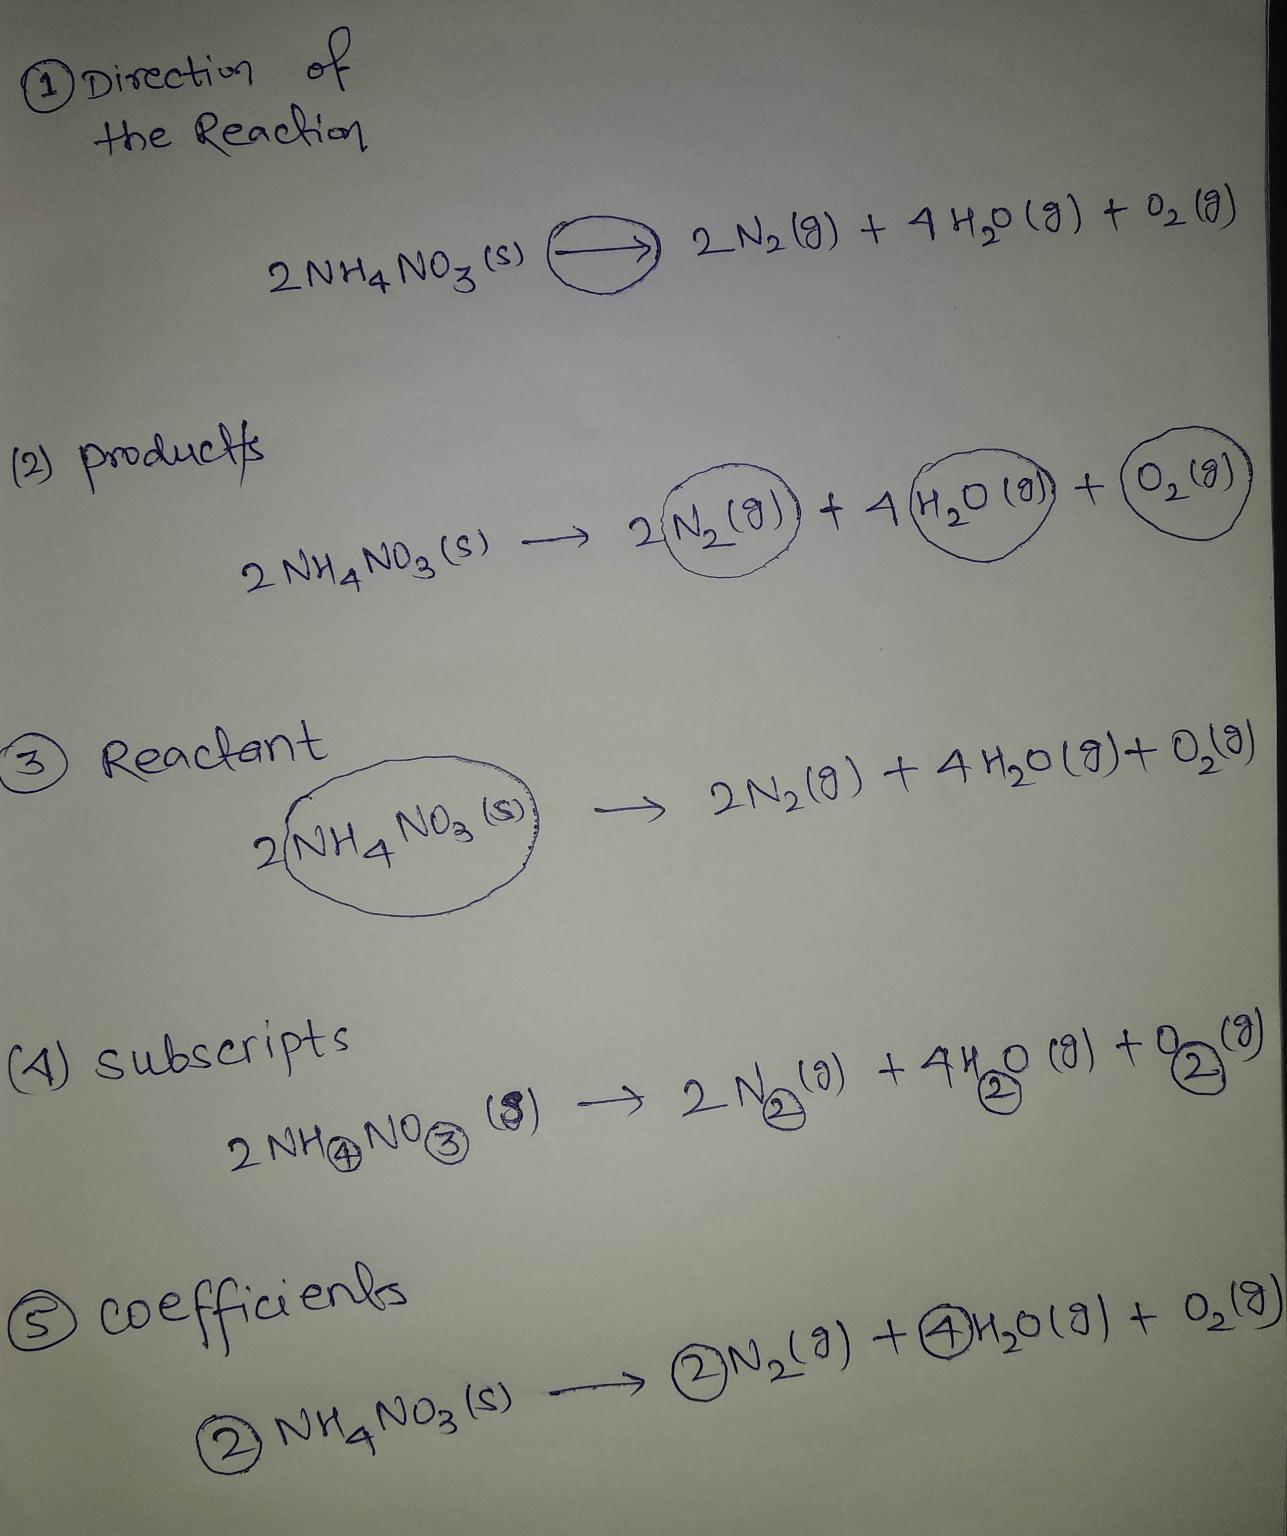 ① Direction of
the Reaction
2NH₄NO₃(s) → 2N₂(g) + 4H₂O(g) + O₂(g)
(2) products
2NH₄NO₃(s) → 2N₂(g) + 4H₂O(g) + O₂(g)
③ Reactant
2NH₄NO₃(s) → 2N₂(g) + 4H₂O(g) + O₂(g)
(4) subscripts
2NH₄NO₃(s) → 2N₂(g) + 4H₂O(g) + O₂(g)
⑤ coefficients
②NH₄NO₃(s) → ②N₂(g) + ④H₂O(g) + O₂(g)